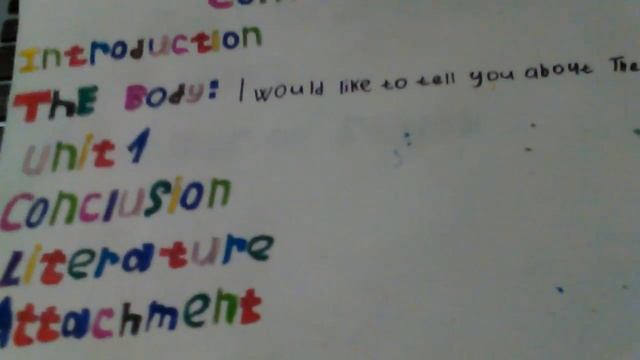 Introduction
The Body: I would like to tell you about The
Unit 1
Conclusion
Literature
Attachment